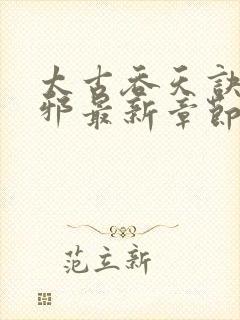 太古吞天诀
邪最新章节
范立新